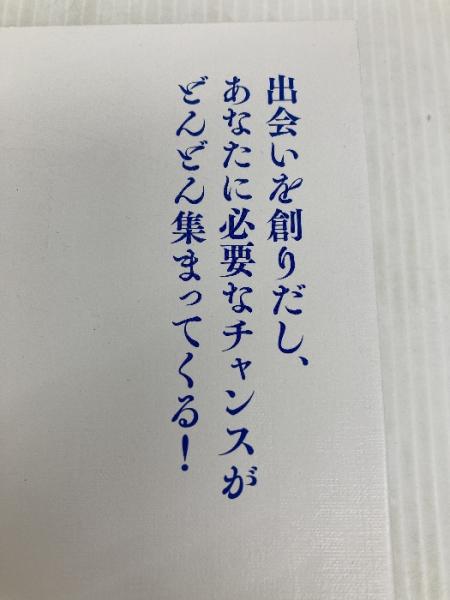 出会いを創りだし、
あなたに必要なチャンスが
どんどん集まってくる！